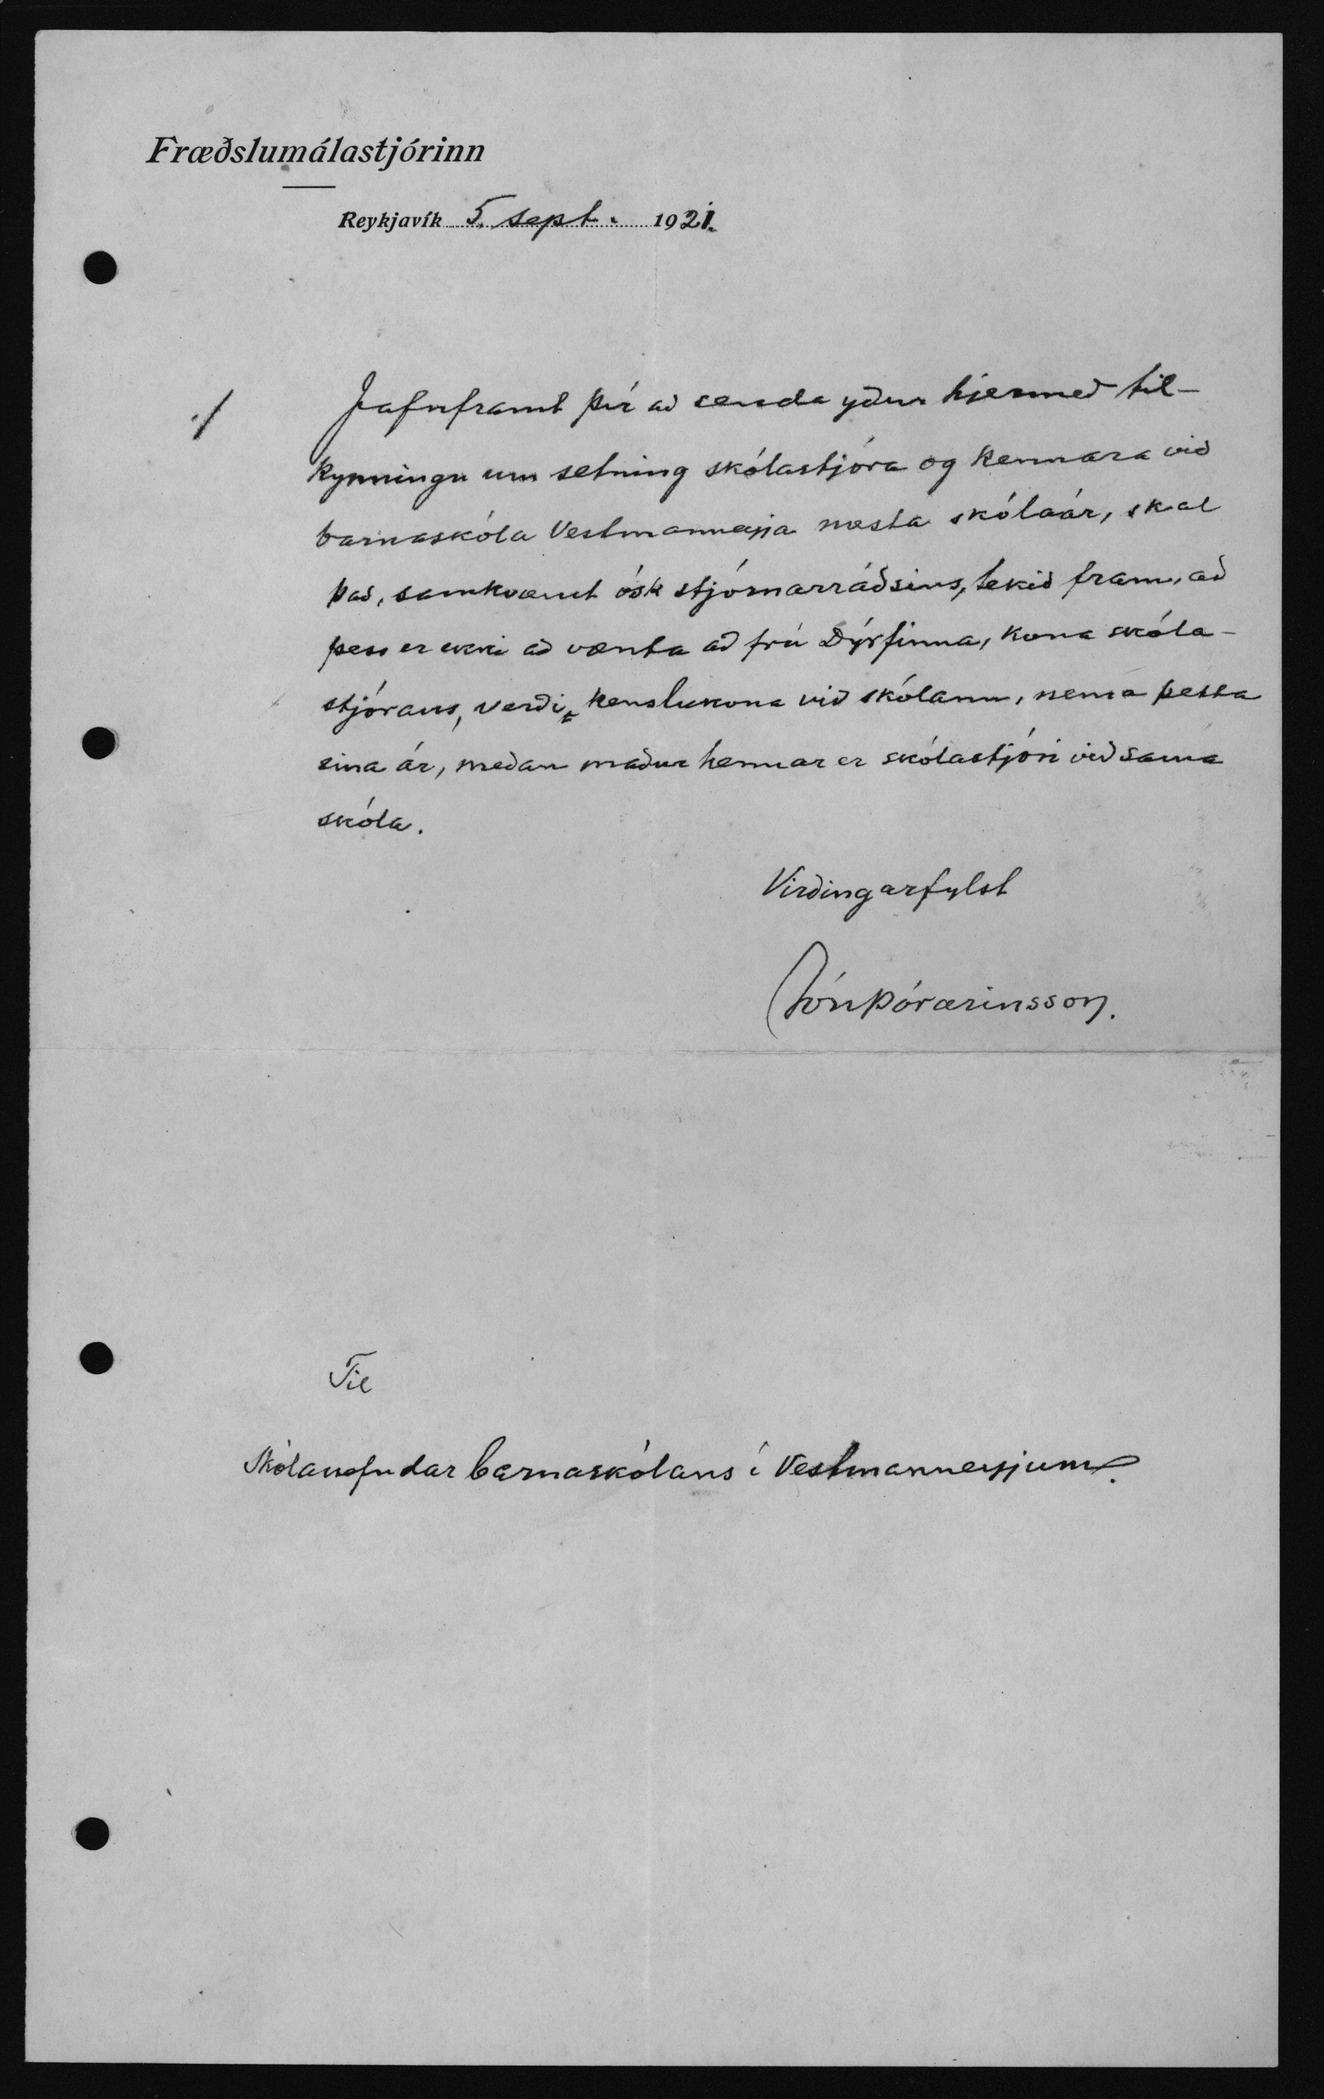 Fræðslumálastjórinn
Reykjavík 5. sept. 1921.
./.
Jafnframt því að senda yður hjermeð til-
kynningu um setning skólastjóra og kennara við
barnaskóla Vestmannaeyja næsta skólaár, skal
það, samkvæmt ósk stjórnarráðsins, tekið fram, að
þess er ekki að vænta að frú Dýrfinna, kona skóla-
stjórans, verði kenslukona við skólann, nema þetta
eina ár, meðan maður hennar er skólastjóri við sama
skóla.
Virðingarfylst
Jón Þórarinsson.
Til
Skólanefndar barnaskólans í Vestmannaeyjum.